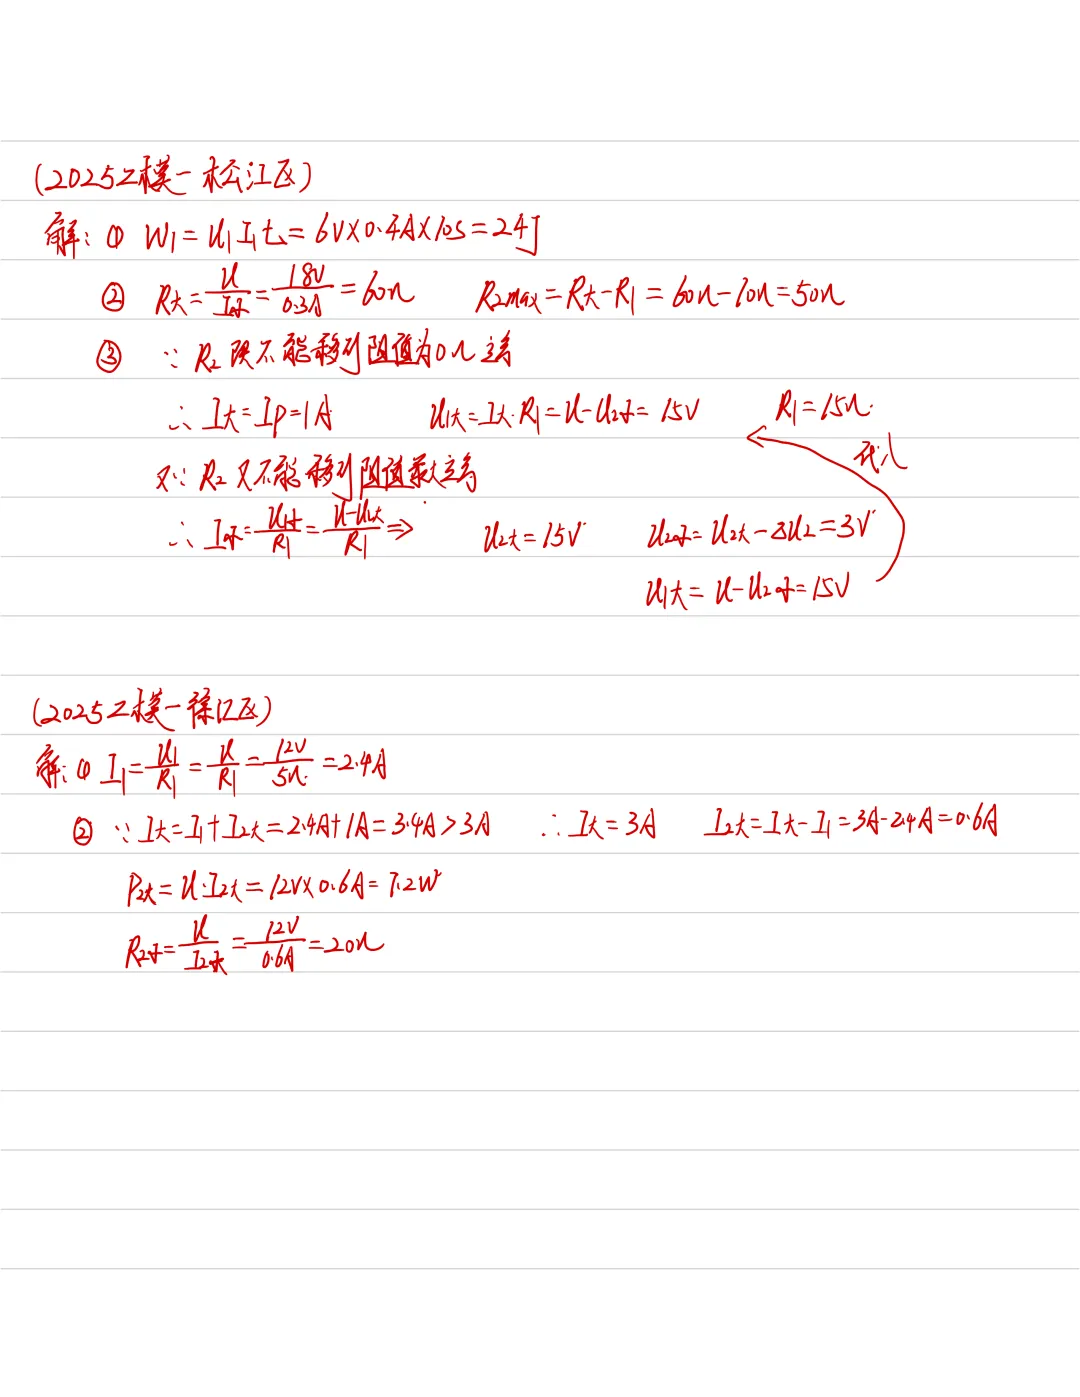 (2025二模一松江区)
解：① W₁=U₁I₁t=6V×0.4A×10s=24J
② R大=U/I小=18V/0.3A=60Ω R₂max=R大-R₁=60Ω-10Ω=50Ω
③ ∵ R₂ 不能移到阻值为0Ω 处
∴ I大=IP=1A U₁大=I大·R₁=U-U₂小=15V R₁=15Ω.
又∵ R₂ 又不能移到阻值最大处
代入
∴ I小=U₁小/R₁=U-U₂大/R₁⇒ U₂大=15V U₂小=U₂大-ΔU₂=3V
U₁大=U-U₂小=15V
(2025二模一徐汇区)
解：① I₁=U₁/R₁=U/R₁=12V/5Ω=2.4A
② ∵ I大=I₁+I₂大=2.4A+1A=3.4A>3A ∴ I大=3A I₂大=I大-I₁=3A-2.4A=0.6A
P₂大=U·I₂大=12V×0.6A=7.2W
R₂小=U/I₂大=12V/0.6A=20Ω